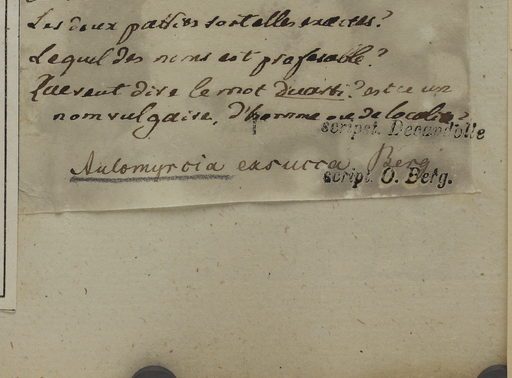 Les deux parties sont elles exactes?
Lequel des noms est preferable?
Que veut dire le mot ? est ce un
nom vulgaire, d'homme ou de localité?
scripsit Decandolle
Aulomyrcia exsucca Berg
script. O. Berg.